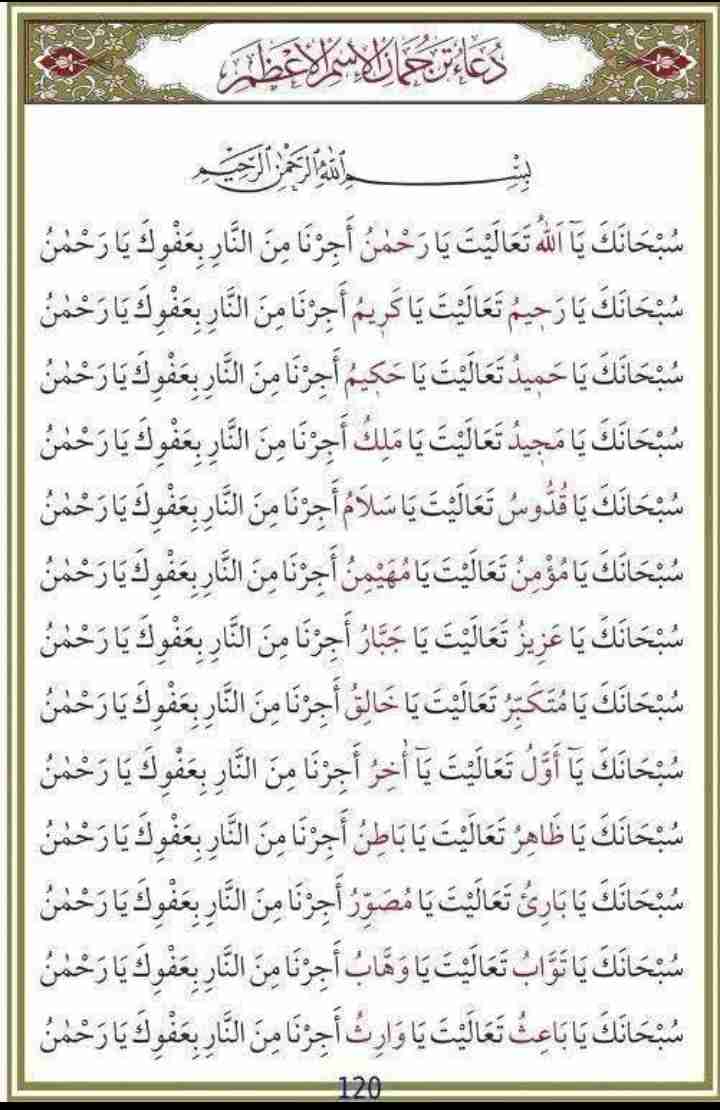 دُعَاءُ تَرْجُمَانِ الْاِسْمِ الْاَعْظَمِ
بِسْمِ اللّٰهِ الرَّحْمٰنِ الرَّحِيْمِ
سُبْحَانَكَ يَآ اَللّٰهُ تَعَالَيْتَ يَا رَحْمٰنُ أَجِرْنَا مِنَ النَّارِ بِعَفْوِكَ يَا رَحْمٰنُ
سُبْحَانَكَ يَا رَحٖيمُ تَعَالَيْتَ يَا كَرٖيمُ أَجِرْنَا مِنَ النَّارِ بِعَفْوِكَ يَا رَحْمٰنُ
سُبْحَانَكَ يَا حَمٖيدُ تَعَالَيْتَ يَا حَكٖيمُ أَجِرْنَا مِنَ النَّارِ بِعَفْوِكَ يَا رَحْمٰنُ
سُبْحَانَكَ يَا مَجٖيدُ تَعَالَيْتَ يَا مَلِكُ أَجِرْنَا مِنَ النَّارِ بِعَفْوِكَ يَا رَحْمٰنُ
سُبْحَانَكَ يَا قُدُّوسُ تَعَالَيْتَ يَا سَلَامُ أَجِرْنَا مِنَ النَّارِ بِعَفْوِكَ يَا رَحْمٰنُ
سُبْحَانَكَ يَا مُؤْمِنُ تَعَالَيْتَ يَا مُهَيْمِنُ أَجِرْنَا مِنَ النَّارِ بِعَفْوِكَ يَا رَحْمٰنُ
سُبْحَانَكَ يَا عَزِيزُ تَعَالَيْتَ يَا جَبَّارُ أَجِرْنَا مِنَ النَّارِ بِعَفْوِكَ يَا رَحْمٰنُ
سُبْحَانَكَ يَا مُتَكَبِّرُ تَعَالَيْتَ يَا خَالِقُ أَجِرْنَا مِنَ النَّارِ بِعَفْوِكَ يَا رَحْمٰنُ
سُبْحَانَكَ يَآ أَوَّلُ تَعَالَيْتَ يَآ أٰخِرُ أَجِرْنَا مِنَ النَّارِ بِعَفْوِكَ يَا رَحْمٰنُ
سُبْحَانَكَ يَا ظَاهِرُ تَعَالَيْتَ يَا بَاطِنُ أَجِرْنَا مِنَ النَّارِ بِعَفْوِكَ يَا رَحْمٰنُ
سُبْحَانَكَ يَا بَارِئُ تَعَالَيْتَ يَا مُصَوِّرُ أَجِرْنَا مِنَ النَّارِ بِعَفْوِكَ يَا رَحْمٰنُ
سُبْحَانَكَ يَا تَوَّابُ تَعَالَيْتَ يَا وَهَّابُ أَجِرْنَا مِنَ النَّارِ بِعَفْوِكَ يَا رَحْمٰنُ
سُبْحَانَكَ يَا بَاعِثُ تَعَالَيْتَ يَا وَارِثُ أَجِرْنَا مِنَ النَّارِ بِعَفْوِكَ يَا رَحْمٰنُ
120